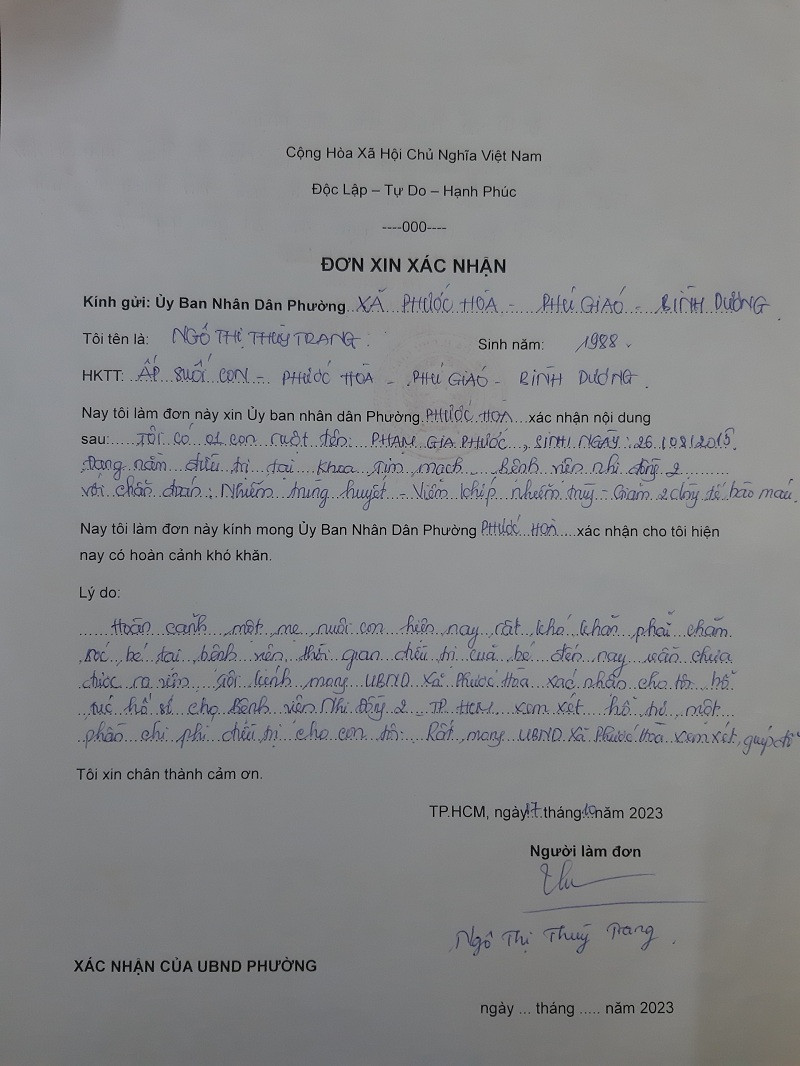 Cộng Hòa Xã Hội Chủ Nghĩa Việt Nam
Độc Lập – Tự Do – Hạnh Phúc
----000----
ĐƠN XIN XÁC NHẬN
Kính gửi: Ủy Ban Nhân Dân Phường XÃ PHƯỚC HÒA - PHÚ GIÁO - BÌNH DƯƠNG
Tôi tên là: NGÔ THỊ THÙY TRANG. Sinh năm: 1988.
HKTT: ẤP SUỐI CON - PHƯỚC HÒA - PHÚ GIÁO - BÌNH DƯƠNG.
Nay tôi làm đơn này xin Ủy ban nhân dân Phường PHƯỚC HÒA xác nhận nội dung
sau: Tôi có 01 con ruột tên: PHẠM GIA PHƯỚC, SINH NGÀY: 26/08/2015.
Đang nằm điều trị tại khoa tim mạch bệnh viện nhi đồng 2
với chẩn đoán: Nhiễm trùng huyết - Viêm khớp nhiễm trùng - Giảm 2 dòng tế bào máu.
Nay tôi làm đơn này kính mong Ủy Ban Nhân Dân Phường PHƯỚC HÒA xác nhận cho tôi hiện
nay có hoàn cảnh khó khăn.
Lý do:
Hoàn cảnh một mẹ nuôi con hiện nay rất khó khăn phải chăm
sóc bé tại bệnh viện, thời gian điều trị của bé đến nay vẫn chưa
được ra viện. Tôi kính mong UBND Xã Phước Hòa xác nhận cho tôi bổ
túc hồ sơ cho Bệnh viện Nhi Đồng 2 TP. HCM xem xét hỗ trợ một
phần chi phí điều trị cho con tôi. Rất mong UBND Xã Phước Hòa xem xét, giúp đỡ
Tôi xin chân thành cảm ơn.
TP.HCM, ngày 17 tháng 10 năm 2023
Người làm đơn
Ngô Thị Thuỳ Trang.
XÁC NHẬN CỦA UBND PHƯỜNG
ngày ... tháng ..... năm 2023